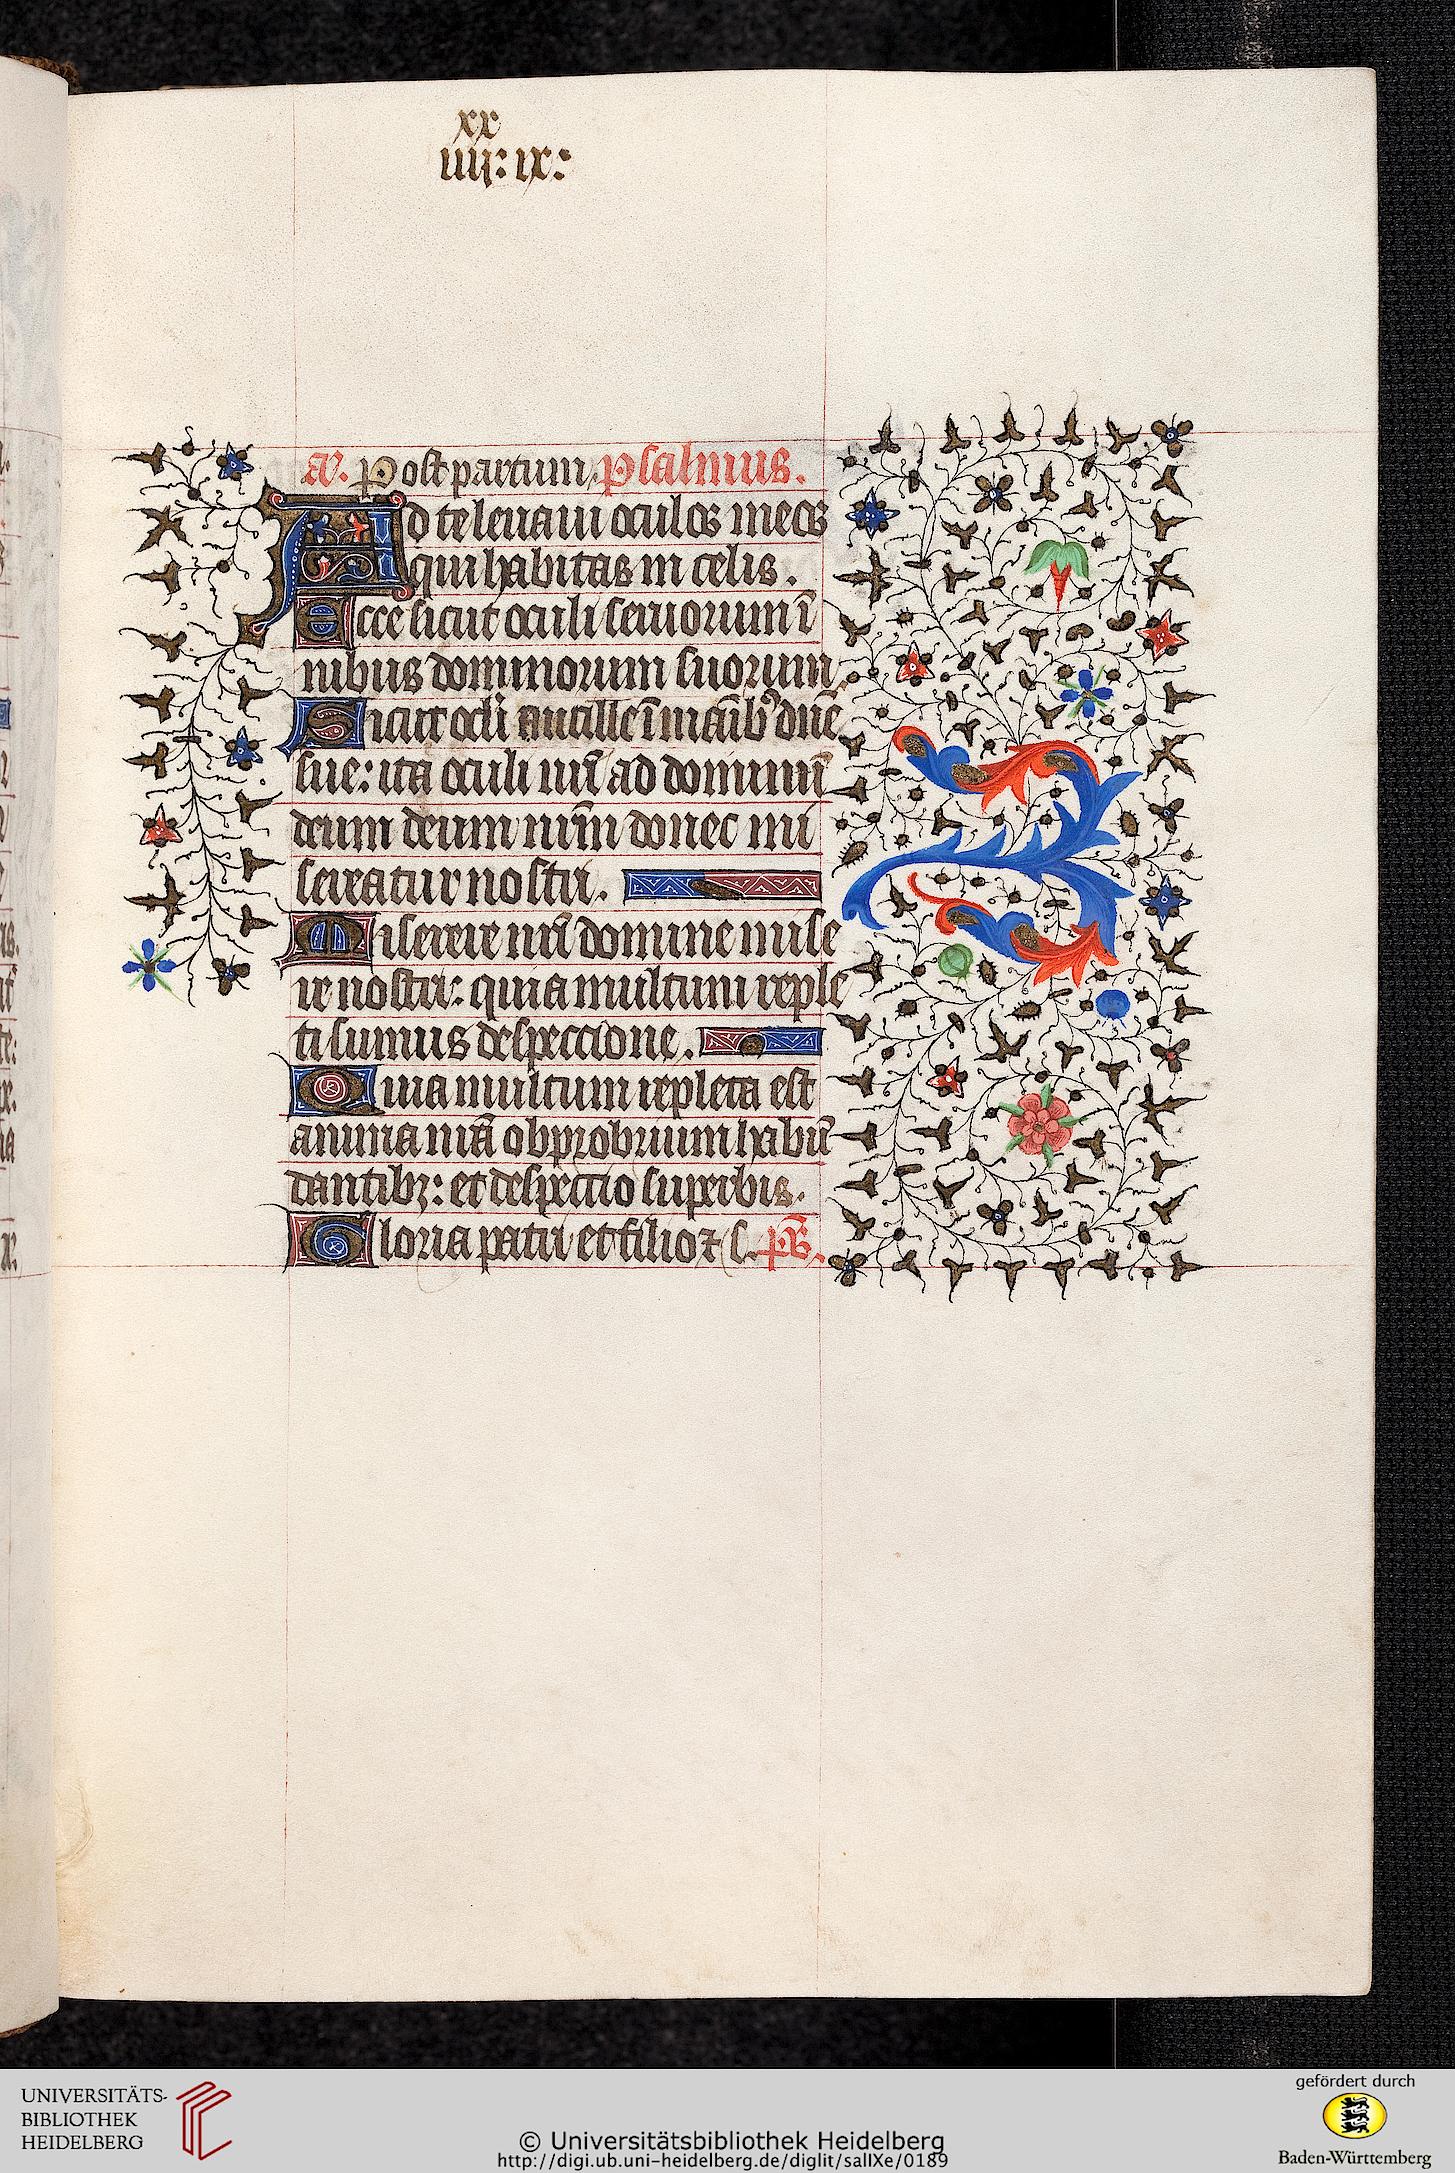 xx
iiij: ix:
a'. Post partum. Psalmus.
Ad te leuaui oculos meos
qui habitas in celis.
Ecce sicut oculi seruorum ī
nibus dominorum suorum.
Sicut ocl̄i ancille ī maīb9 dn̄e
sue: ita oculi nr̄i ad dominū
deum deum nr̄m donec mi
sereatur nostri.
Miserere nr̄i domine mise
re nostri: quia multum reple
ti sumus despeccione.
Quia multum repleta est
anima nr̄a obprobrium habū
dantibꝫ: et despectio superbis.
Gloria patri et filio ⁊ s. ps̄.
UNIVERSITÄTS-
BIBLIOTHEK
HEIDELBERG
© Universitätsbibliothek Heidelberg
http://digi.ub.uni-heidelberg.de/diglit/salIXe/0189
gefördert durch
Baden-Württemberg